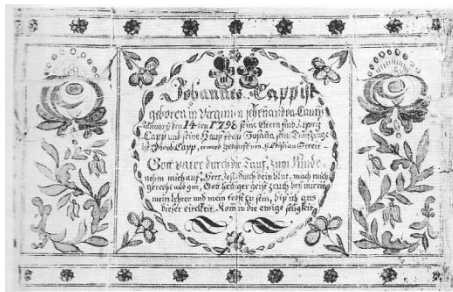 Johannes Cappist
geboren in Virginia Schenandoa Caunty
Januarÿ den 14 ten 1798 seine Eltern sind
Capp und seine Hausfrau Susana, sein Taufzeuge
ist Jacob Capp, erward getauft von H. Christian Streit
Gott vater durch die Tauf, zum Kinde
nehm mich auf, Herr Jesu durch dein blut, mach mich
gerecht und Gott heiliger geist
mein lehrer und mein troster sein, biß ich aus
dieser eitelkeit, Kom in die ewige seligkeit